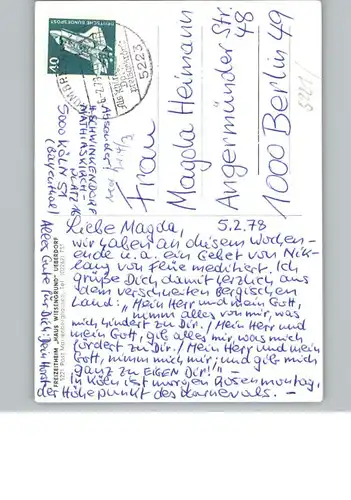 DEUTSCHE BUNDESPOST
40
5223
Absender:
H. SCHWINKENDORF
MATHIASKIRCH-
PLATZ 16
5000 KÖLN 51
(Bayenthal)
Frau
Magda Heimann
Angermünder Str.
48
1000 Berlin 49
Liebe Magda,
5.2.78
wir haben an diesem Wochen-
ende u. a. ein Gebet von Nik-
laus von Flüe meditiert. Ich
grüße Dich damit herzlich aus
dem verschneiten Bergischen
Land: „Mein Herr und mein Gott,
nimm alles von mir, was
mich hindert zu Dir. / Mein Herr und
mein Gott, gib alles mir, was mich
fördert zu Dir. / Mein Herr und mein
Gott, nimm mich mir; und gib mich
ganz zu EIGEN Dir!" –
In Köln ist morgen Rosenmontag,
der Höhepunkt des Karnevals. –
Alles Gute für Dich: Dein Horst
FREIZEITHEIM „HAUS WIESENGRUND" UEBERDORF